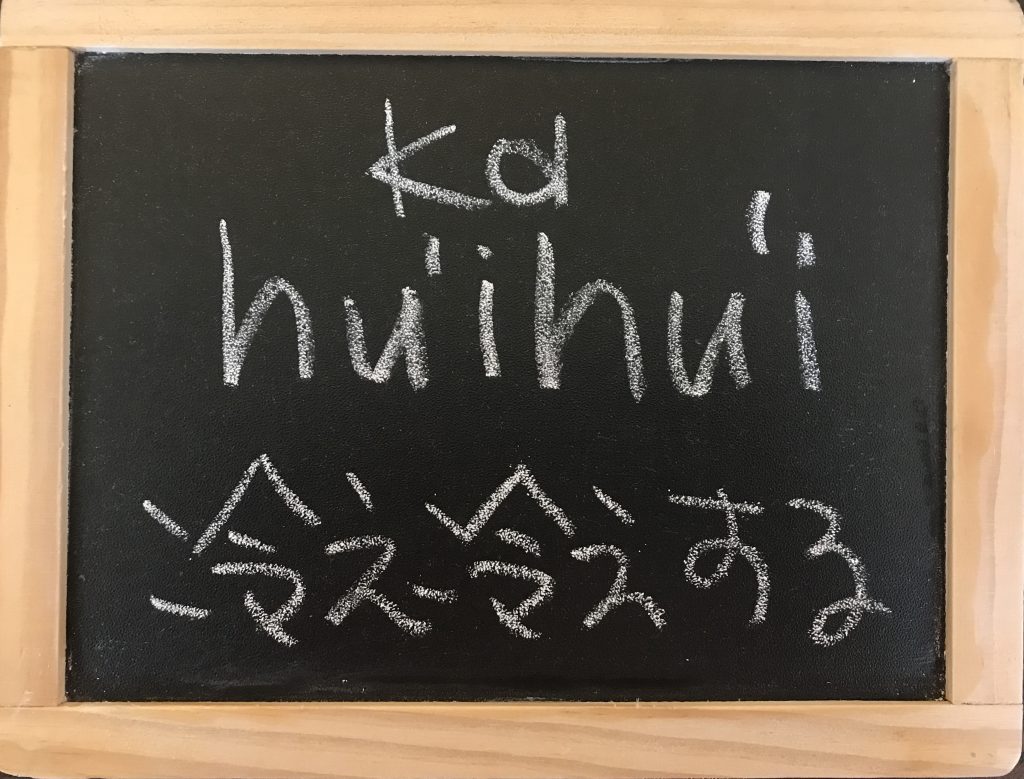 ka
hu'ihu'i
冷え冷えする